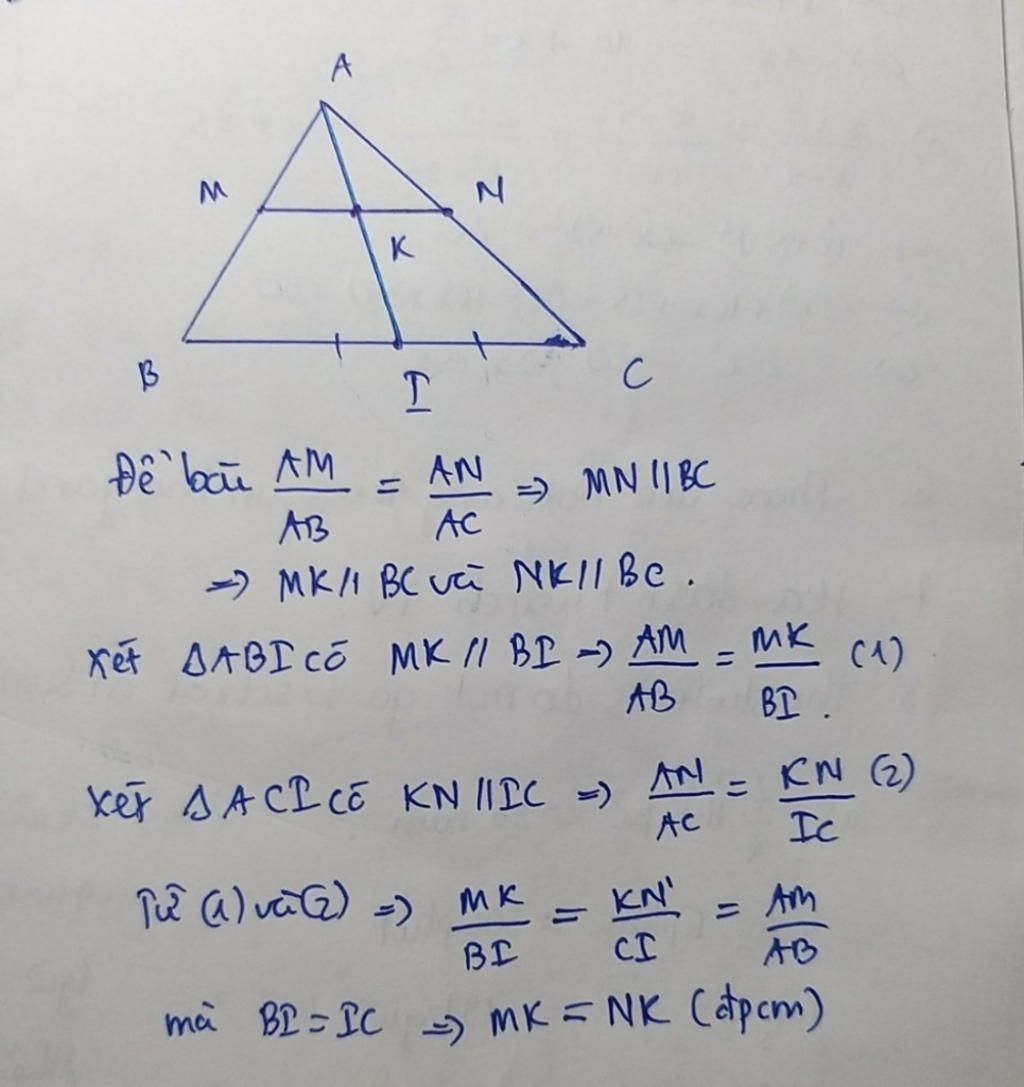 A
M N
K
B I C
Đề bài AM/AB = AN/AC => MN // BC
=> MK // BC và NK // BC.
Xét ΔABI có MK // BI => AM/AB = MK/BI (1)
Xét ΔACI có KN // IC => AN/AC = KN/IC (2)
Từ (1) và (2) => MK/BI = KN/CI = AM/AB
mà BI = IC => MK = NK (đpcm)